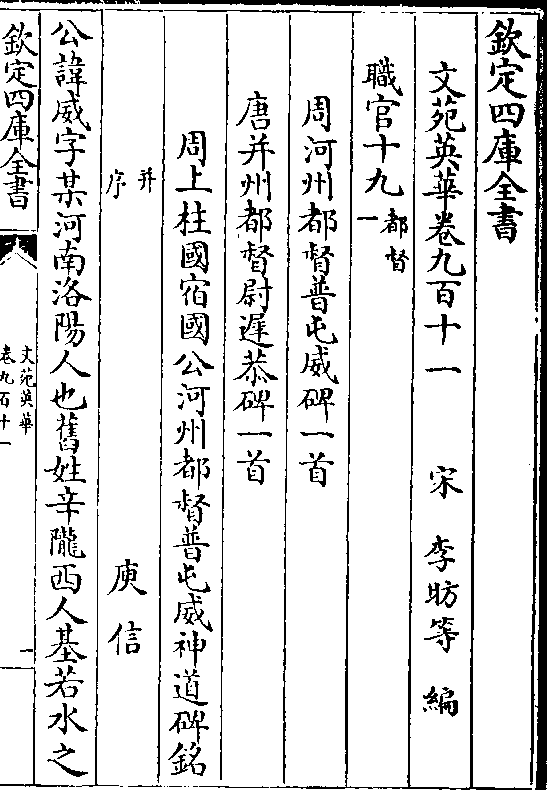 欽定四庫全書
文苑英華卷九百十一　宋　李昉等　編
職官十九都督一
周河州都督普屯威碑一首
唐并州都督尉遲恭碑一首
周上柱國宿國公河州都督普屯威神道碑銘
并序　庾信
公諱威字某河南洛陽人也舊姓辛隴西人基若水之
欽定四庫全書
文苑英華
卷九百十一
一